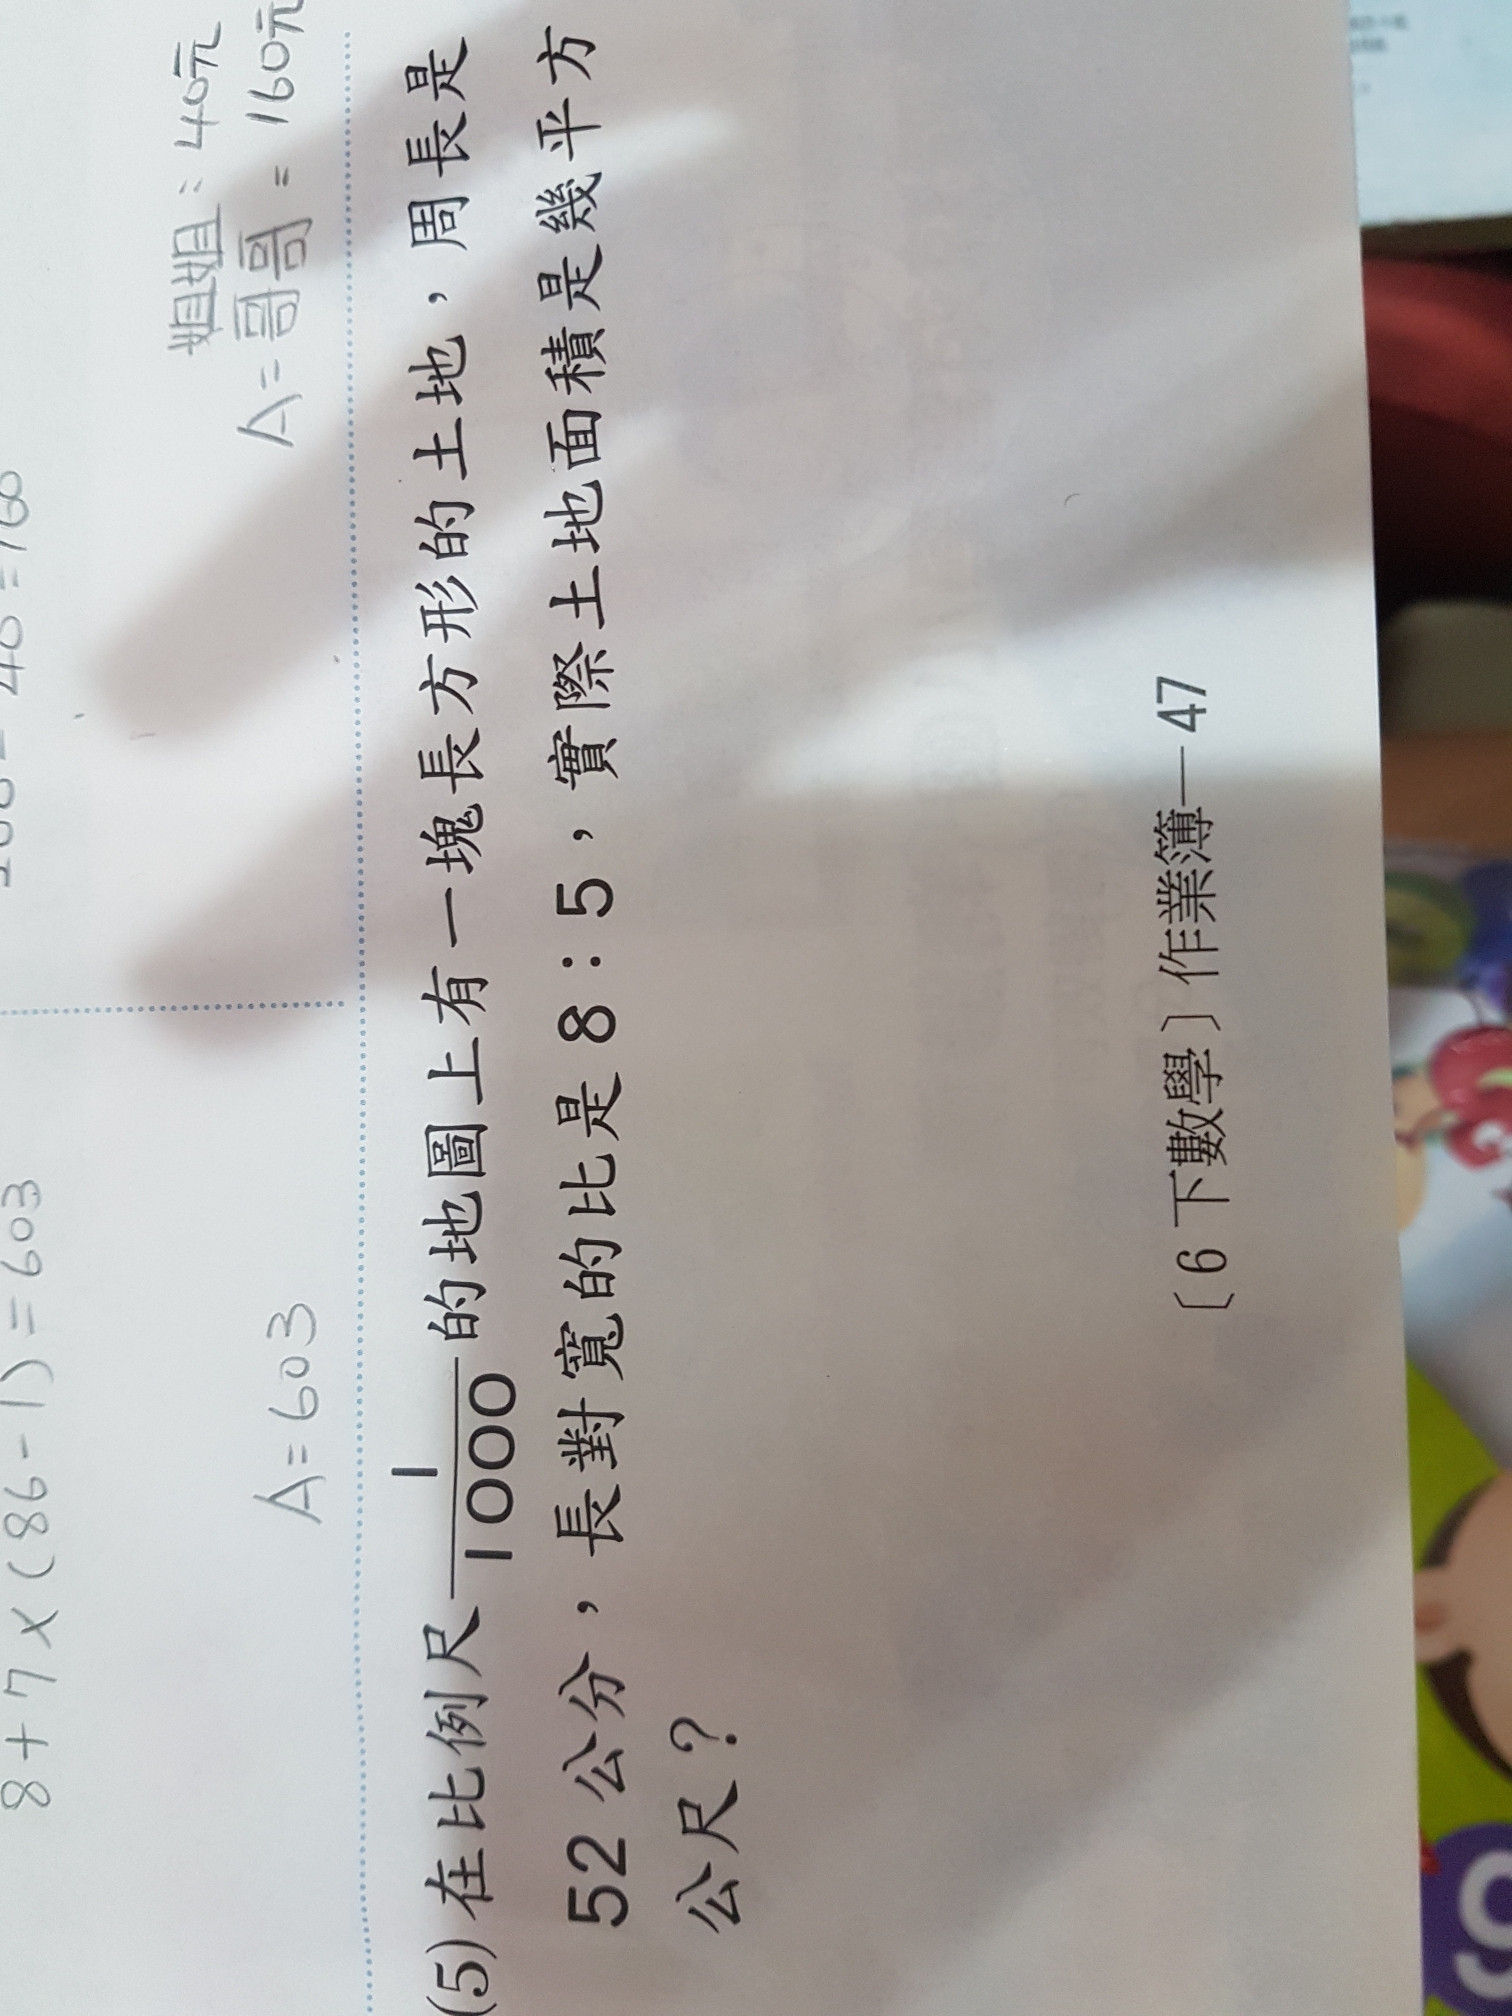 8+7×(86-1)=603
A=603
姐姐：40元
A=哥哥=160元
(5)在比例尺 1/1000 的地圖上有一塊長方形的土地，周長是
52公分，長對寬的比是8：5，實際土地面積是幾平方
公尺？
〔6下數學〕作業簿—47